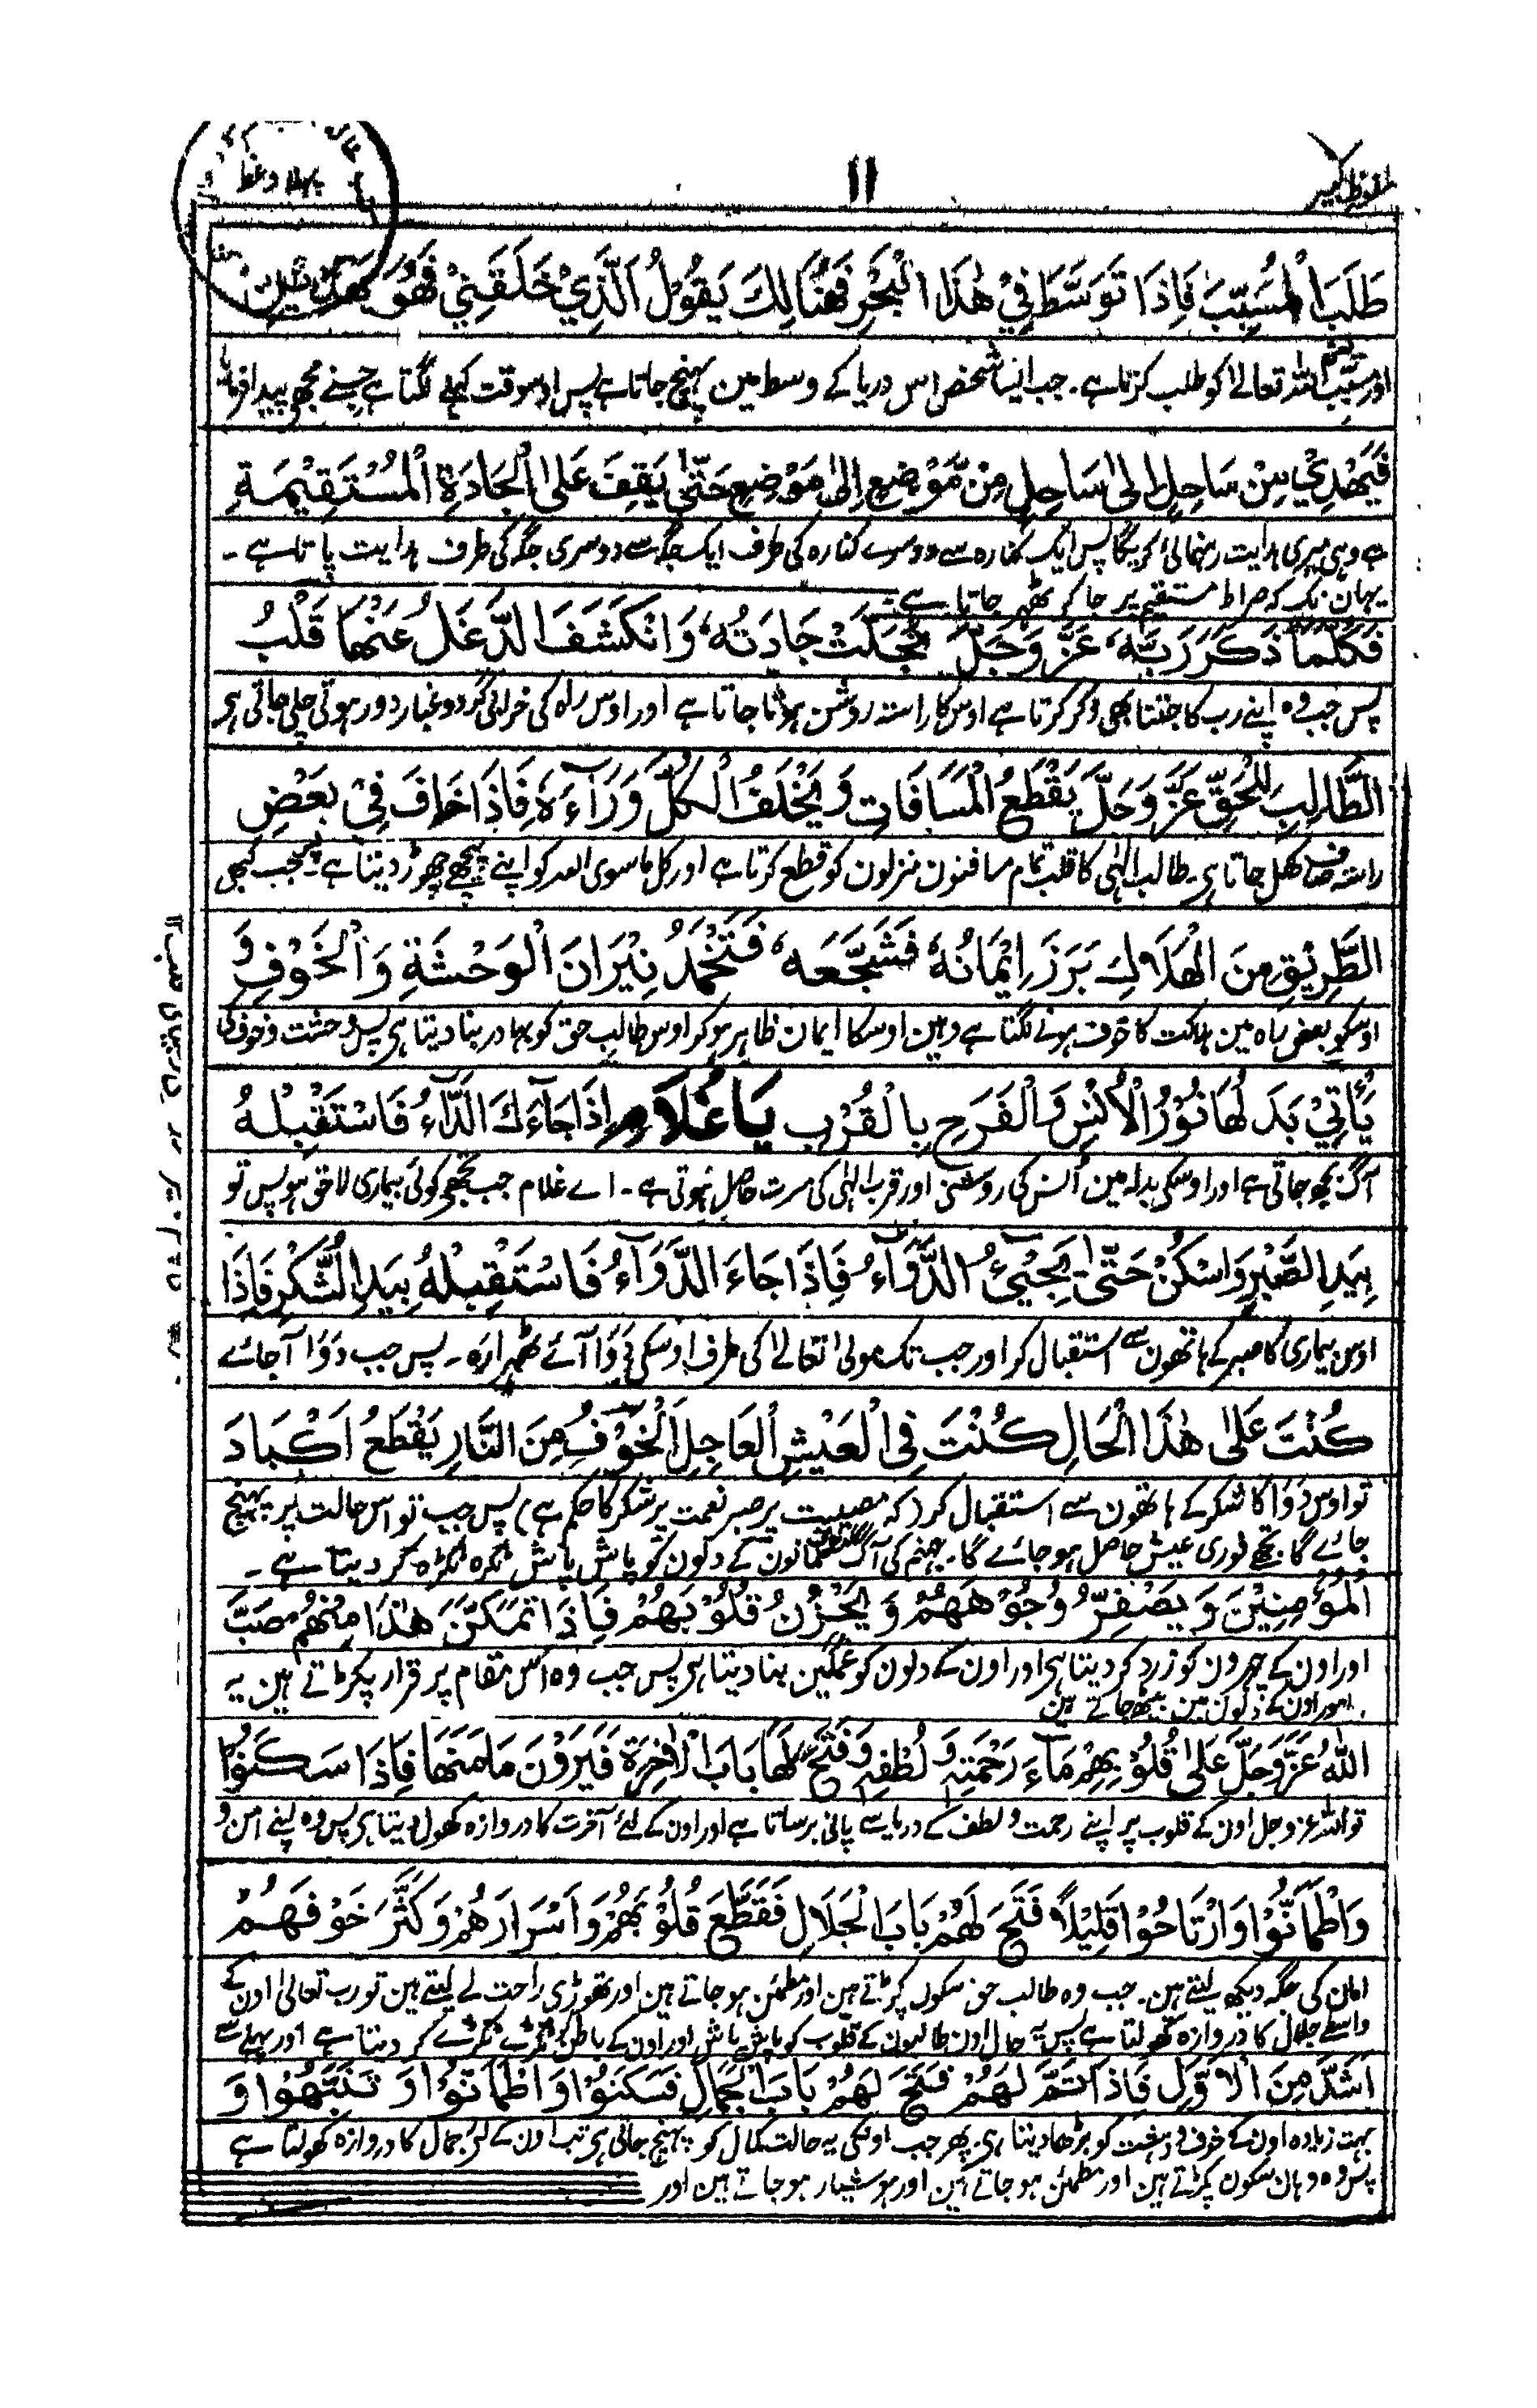 ۱۱
پہلا وعظ
طَلَبَ الْمُسَبِّبَ فَاِذَا تَوَسَّطَ فِيْ هٰذَا الْبَحْرِ فَهُنَالِكَ يَقُوْلُ اَلَّذِيْ خَلَقَنِيْ فَهُوَ يَهْدِيْنِ
اور مسبب اللہ تعالےٰ کو طلب کرتا ہے۔ جب ایسا شخص اس دریا کے وسط مین پہنچ جاتا ہے پس اوسوقت کہنے لگتا ہے جسنے مجھے پیدا فرمایا
فَيَهْدِيْ مِنْ سَاحِلٍ اِلىٰ سَاحِلٍ مِنْ مَّوْضِعٍ اِلىٰ مَوْضِعٍ حَتّىٰ يَقِفَ عَلَى الْجَادَةِ الْمُسْتَقِيْمَةِ
ہے وہی میری ہدایت رہنمائی کریگا پس ایک کنارہ سے دوسرے کنارہ کی طرف ایک جگہ سے دوسری جگہ کی طرف ہدایت پاتا ہے۔
یہان تک کہ صراط مستقیم پر جا کر ٹھہر جاتا ہے۔
فَكُلَّمَا ذَكَرَ رَبَّهٗ عَزَّ وَجَلَّ تَجَلَّتْ جَادَتُهٗ وَانْكَشَفَ الدَّغَلُ عَنْهَا قَلْبُ
پس جب وہ اپنے رب کا جتنا بھی ذکر کرتا ہے اوس کا راستہ روشن ہوتا جاتا ہے اور اوس راہ کی خرابی گرد و غبار دور ہوتی چلی جاتی ہی
الطَّالِبِ لِلْحَقِّ عَزَّ وَجَلَّ يَقْطَعُ الْمَسَافَاتِ وَيُخَلِّفُ الْكُلَّ وَرَآءَهٗ فَاِذَا خَافَ فِيْ بَعْضِ
راستہ صاف کھل جاتا ہی۔ طالب الٰہی کا قلب تمام مسافتون منزلون کو قطع کرتا ہے اور کل ماسوی اللہ کو اپنے پیچھے چھوڑ دیتا ہے۔ پس جب کبھی
الطَّرِيْقِ مِنَ الْهَلَاكِ بَرَزَ اِيْمَانُهٗ فَشَجَّعَهٗ فَتَخْمَدُ نِيْرَانُ الْوَحْشَةِ وَالْخَوْفِ وَ
اوسکو بعض راہ مین ہلاکت کا خوف ہونے لگتا ہے وہین اوسکا ایمان ظاہر ہو کر اوس طالب حق کو بہادر بنا دیتا ہی پس وحشت و خوف کی
يَأْتِيْ بَدَلَهَا نُوْرُ الْاُنْسِ وَالْفَرَحِ بِالْقُرْبِ يَا غُلَامُ اِذَا جَآءَكَ الدَّآءُ فَاسْتَقْبِلْهُ
آگ بجھ جاتی ہے اور اوسکی بدلہ مین اُنس کی روشنی اور قرب الٰہی کی مسرت حاصل ہوتی ہے۔ اے غلام جب تجھے کوئی بیماری لاحق ہو پس تو
بِيَدِ الصَّبْرِ وَاسْكُنْ حَتّىٰ يَجِيْئَ الدَّوَآءُ فَاِذَا جَاءَ الدَّوَآءُ فَاسْتَقْبِلْهُ بِيَدِ الشُّكْرِ فَاِذَا
اوس بیماری کا صبر کے ہاتھون سے استقبال کر اور جب تک مولیٰ تعالےٰ کی طرف اوسکی دوا آئے ٹھہرا رہ۔ پس جب دوا آ جائے
كُنْتَ عَلىٰ هٰذَا الْحَالِ كُنْتَ فِي الْعَيْشِ الْعَاجِلِ اَلْخَوْفُ مِنَ النَّارِ يَقْطَعُ اَكْبَادَ
تو اوس دوا کا شکر کے ہاتھون سے استقبال کر (کہ مصیبت پر صبر نعمت پر شکر کا حکم ہے) پس جب تو اس حالت پر پہنچ
جائے گا تجھے فوری عیش حاصل ہو جائے گا۔ جہنم کی آگ مسلمانون کے دلون کو پاش پاش ٹکڑہ ٹکڑہ کر دیتا ہے۔
الْمُؤْمِنِيْنَ وَيُصَفِّرُ وُجُوْهَهُمْ وَيُحْزِنُ قُلُوْبَهُمْ فَاِذَا تَمَكَّنَ هٰذَا مِنْهُمْ صَبَّ
اور اون کے چہرون کو زرد کر دیتا ہی اور اون کے دلون کو غمگین بنا دیتا ہی پس جب وہ اس مقام پر قرار پکڑتے ہین یہ
امور اون کے دلون مین بیٹھ جاتے ہین
اللهُ عَزَّ وَجَلَّ عَلىٰ قُلُوْبِهِمْ مَآءَ رَحْمَتِهٖ وَلُطْفِهٖ وَفَتَحَ لَهَا بَابَ الْاٰخِرَةِ فَيَرَوْنَ مَامَنَهَا فَاِذَا سَكَنُوْا
تو اللہ عزوجل اون کے قلوب پر اپنے رحمت و لطف کے دریا سے پانی برساتا ہے اور اون کے لئے آخرت کا دروازہ کھول دیتا ہی پس وہ اپنے امن و
وَاطْمَأَنُّوْا وَارْتَاحُوْا قَلِيْلًا فَتَحَ لَهُمْ بَابَ الْجَلَالِ فَقَطَّعَ قُلُوْبَهُمْ وَاَسْرَارَهُمْ وَكَثَّرَ خَوْفَهُمْ
امان کی جگہ دیکھ لیتے ہین۔ جب وہ طالب حق سکون پکڑتے ہین اور مطمئن ہو جاتے ہین اور تھوڑی راحت لے لیتے ہین تو رب تعالیٰ اون کے
واسطے جلال کا دروازہ کھولتا ہے پس یہ حال اون طالبون کے قلوب کو پاش پاش اور اون کے باطن کو ٹکڑے ٹکڑے کر دیتا ہے اور پہلے سے
اَشَدَّ مِنَ الْاَوَّلِ فَاِذَا تَمَّ لَهُمْ فَتَحَ لَهُمْ بَابَ الْجَمَالِ فَسَكَنُوْا وَاطْمَأَنُّوْا وَتَنَبَّهُوْا وَ
بہت زیادہ اون کے خوف و دہشت کو بڑھا دیتا ہی۔ پھر جب اونکی یہ حالت کمال کو پہنچ جاتی ہی تب اون کے لئے جمال کا دروازہ کھولتا ہے
پس وہ وہان سکون پکڑتے ہین اور مطمئن ہو جاتے ہین اور ہوشیار ہو جاتے ہین اور